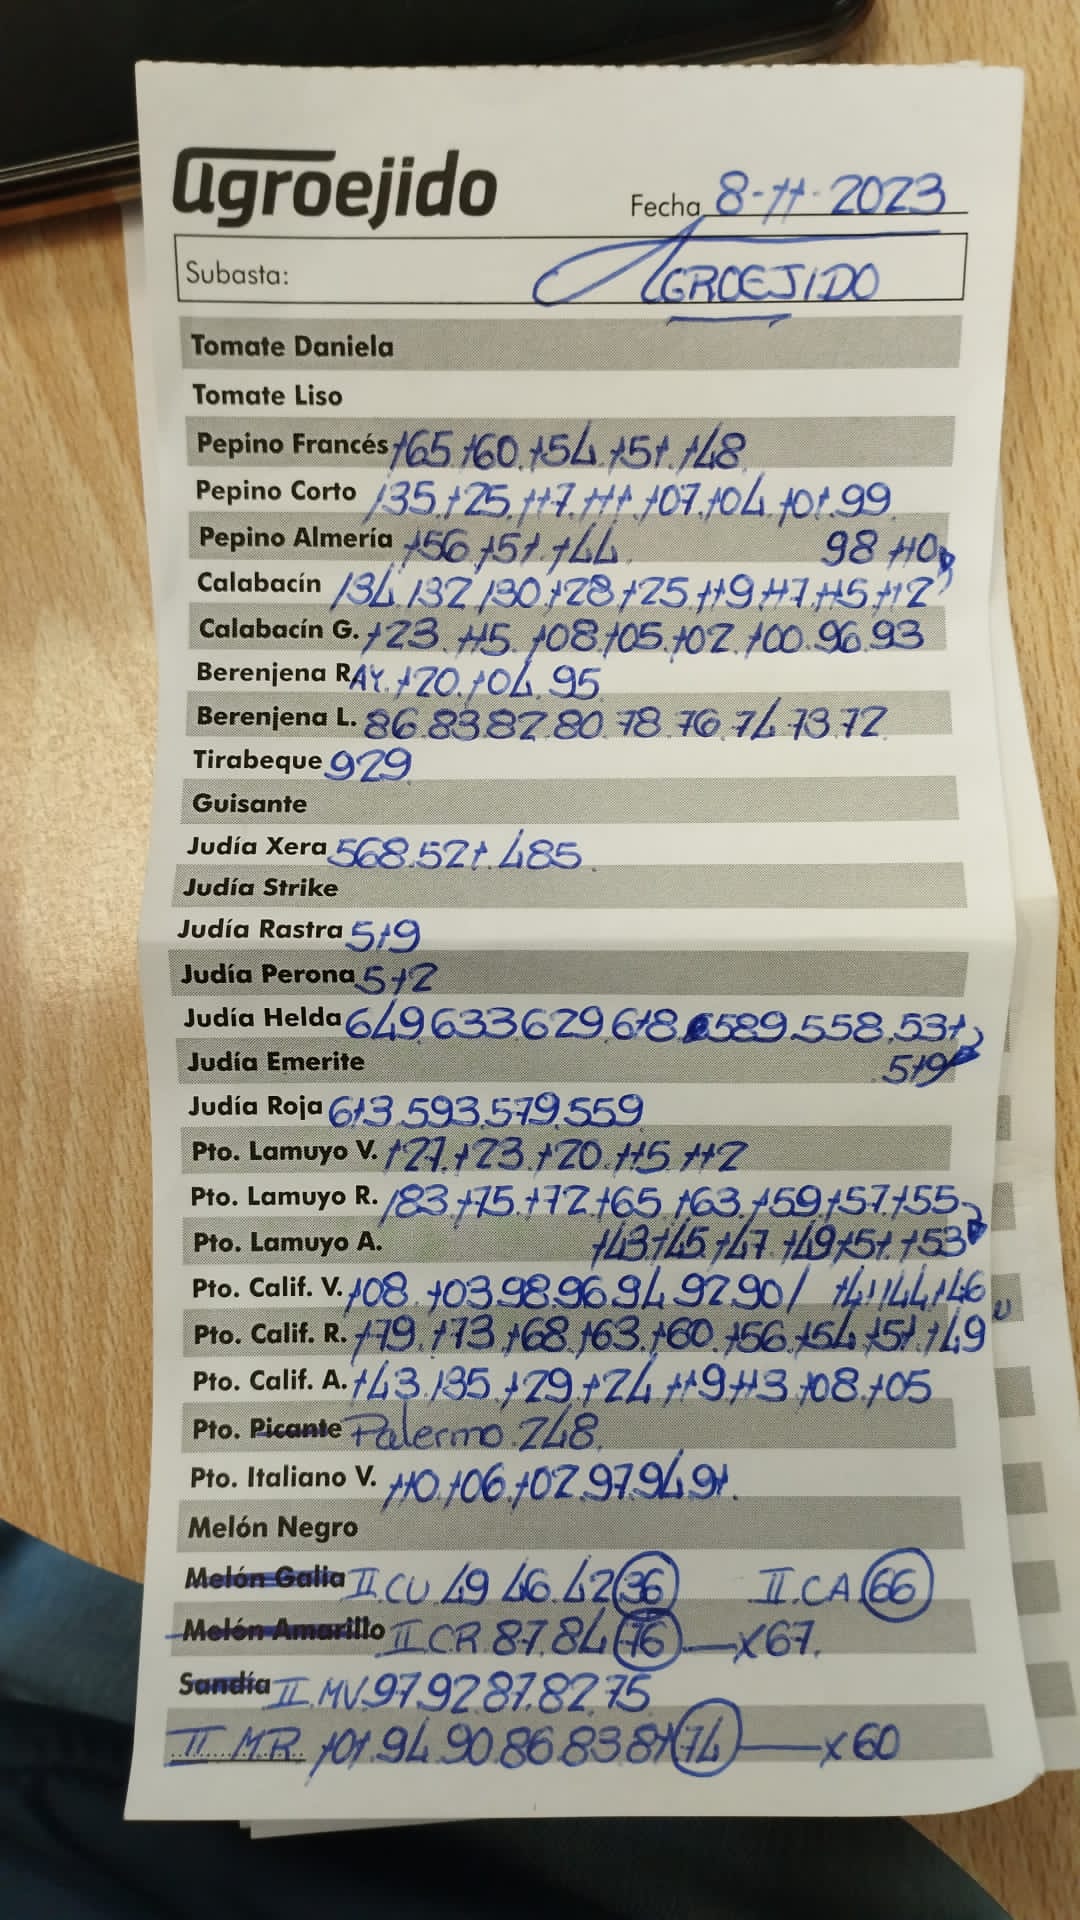 agroejido
Fecha 8-11-2023
Subasta: AGROEJIDO
Tomate Daniela
Tomate Liso
Pepino Francés 165.160.154.151.148
Pepino Corto 135.125.117.111.107.104.101.99
Pepino Almería 156.151.144. 98 110
Calabacín 134.132.130.128.125.119.117.115.112
Calabacín G. 123.115.108.105.102.100.96.93
Berenjena RAY. 120.104.95
Berenjena L. 86.83.82.80.78.76.74.73.72
Tirabeque 929
Guisante
Judía Xera 568.521.485
Judía Strike
Judía Rastra 519
Judía Perona 512
Judía Helda 649.633.629.618.589.558.531
Judía Emerite 519
Judía Roja 613.593.579.559
Pto. Lamuyo V. 127.123.120.115.112
Pto. Lamuyo R. 183.175.172.165.163.159.157.155
Pto. Lamuyo A. 143.145.147.149.151.153
Pto. Calif. V. 108.103.98.96.94.92.90/ 141.144.146
Pto. Calif. R. 179.173.168.163.160.156.154.151.149
Pto. Calif. A. 143.135.129.124.119.113.108.105
Pto. Picante Palermo.248.
Pto. Italiano V. 110.106.102.97.94.91.
Melón Negro
Melón Galia II.CU.49.46.42 36 II.CA 66
Melón Amarillo II CR.87.84 76 — x67.
Sandía II.MV.97.92.87.82.75
II M.R 101.94.90.86.83.81 74 — x60